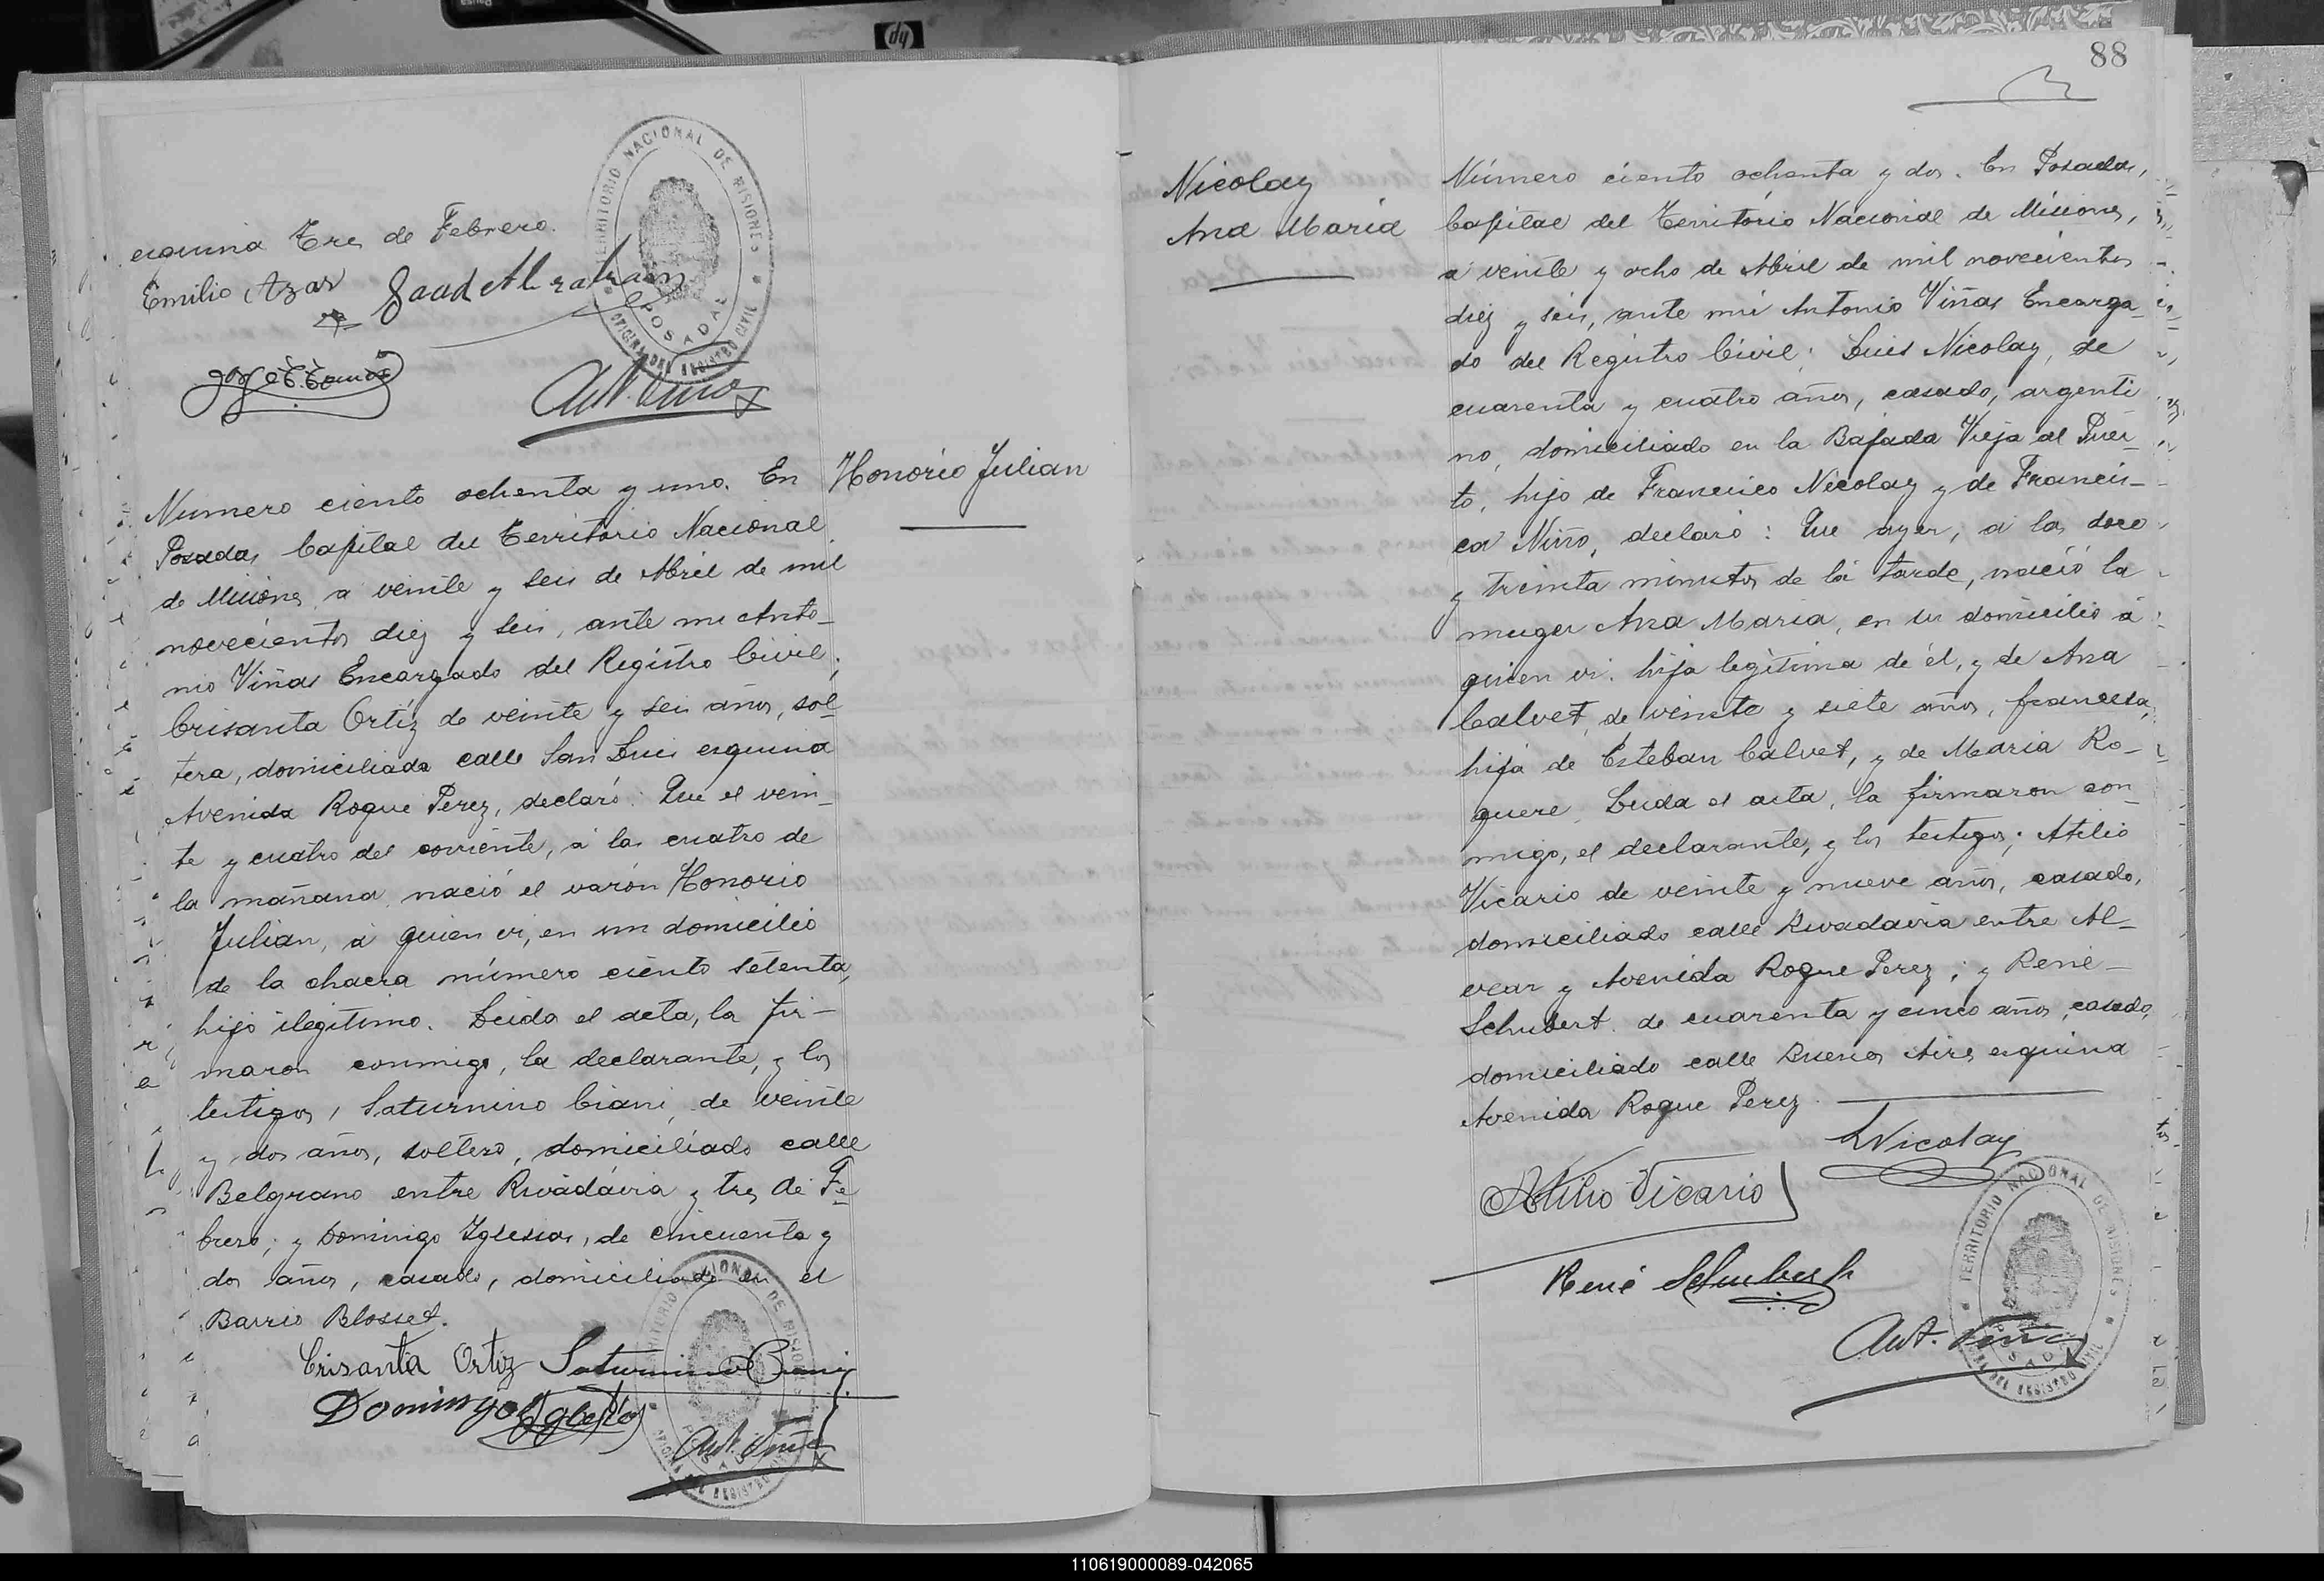 esquina Tres de Febrero.
Emilio Azar
TERRITORIO NACIONAL DE MISIONES
POSADAS
OFICINA DEL REGISTRO CIVIL
Ant. Viñas
Honorio Julian
Numero ciento ochenta y uno. En
Posadas Capital del Territorio Nacional
de Misiones, a veinte y seis de Abril de mil
novecientos diez y seis, ante mi Anto-
nio Viñas Encargado del Registro Civil;
Crisanta Ortíz de veinte y seis años, sol-
tera, domiciliada calle San Luis esquina
Avenida Roque Perez, declaró: Que el vein-
te y cuatro del corriente, á las cuatro de
la mañana, nació el varón Honorio
Julian, á quien vi, en un domicilio
de la chacra número ciento setenta,
hijo ilegítimo. Leida el acta, la fir-
maron conmigo, la declarante, y los
testigos, Saturnino Ciani, de veinte
y dos años, soltero, domiciliado calle
Belgrano entre Rivadavia y tres de Fe-
brero; y Domingo Iglesias, de cincuenta y
dos años, casado, domiciliado en el
Barrio Blosset.
Crisanta Ortiz Saturnino Ciani
Domingo Iglesias
Ant. Viñas
TERRITORIO NACIONAL DE MISIONES
POSADAS
OFICINA DEL REGISTRO CIVIL
88
Nicolay
Ana María
Número ciento ochenta y dos. En Posadas,
Capital del Territorio Nacional de Misiones,
á veinte y ocho de Abril de mil novecientos
diez y seis, ante mi Antonio Viñas Encarga-
do del Registro Civil; Luis Nicolay, de
cuarenta y cuatro años, casado, argenti
no, domiciliado en la Bajada Vieja al Puer-
to, hijo de Francisco Nicolay y de Francis-
ca Niño, declaró: Que ayer, á las doce
y treinta minutos de la tarde, nació la
muger Ana María, en su domicilio á
quien vi. hija legítima de él, y de Ana
Calvet, de veinte y siete años, francesa,
hija de Esteban Calvet, y de María Ro-
quere. Leida el acta, la firmaron con-
migo, el declarante, y los testigos; Atilio
Vicario de veinte y nueve años, casado,
domiciliado calle Rivadavia entre Al-
vear y Avenida Roque Perez; y René
Schubert de cuarenta y cinco años, casado,
domiciliado calle Buenos Aires esquina
Avenida Roque Perez.
LNicolay
Atilio Vicario
René Schubert
Ant. Viñas
TERRITORIO NACIONAL DE MISIONES
POSADAS
OFICINA DEL REGISTRO CIVIL
110619000089-042065